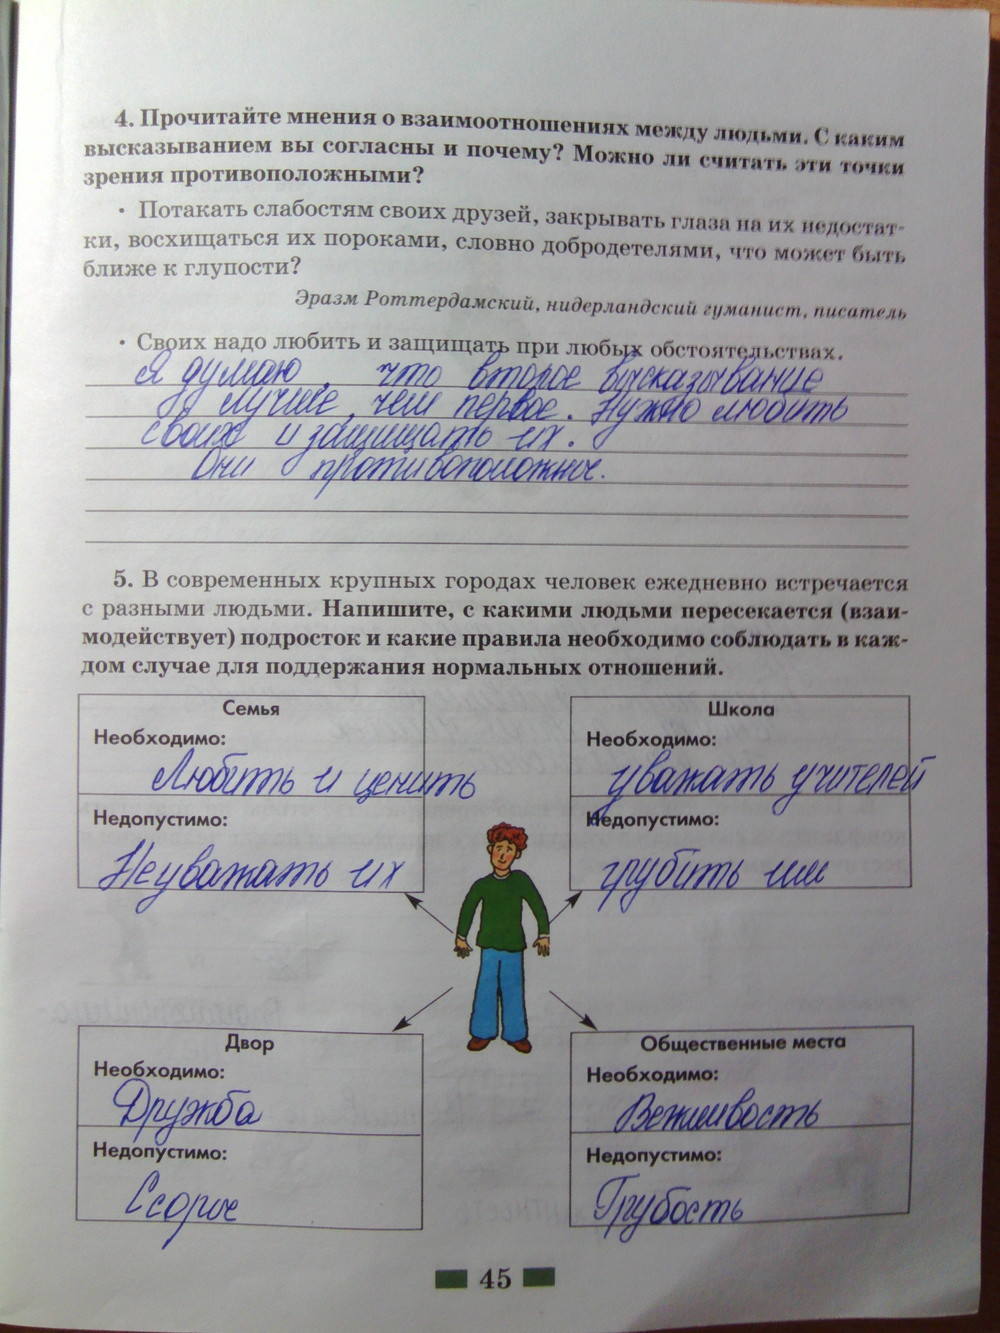 4. Прочитайте мнения о взаимоотношениях между людьми. С каким
высказыванием вы согласны и почему? Можно ли считать эти точки
зрения противоположными?
• Потакать слабостям своих друзей, закрывать глаза на их недостат-
ки, восхищаться их пороками, словно добродетелями, что может быть
ближе к глупости?
Эразм Роттердамский, нидерландский гуманист, писатель
• Своих надо любить и защищать при любых обстоятельствах.
Я думаю, что второе высказывание
лучше, чем первое. Нужно любить
своих и защищать их.
Они противоположны.
5. В современных крупных городах человек ежедневно встречается
с разными людьми. Напишите, с какими людьми пересекается (взаи-
модействует) подросток и какие правила необходимо соблюдать в каж-
дом случае для поддержания нормальных отношений.
Семья
Необходимо:
Любить и ценить
Недопустимо:
Неуважать их
Школа
Необходимо:
уважать учителей
Недопустимо:
грубить им
Двор
Необходимо:
Дружба
Недопустимо:
Ссоры
Общественные места
Необходимо:
Вежливость
Недопустимо:
Грубость
45